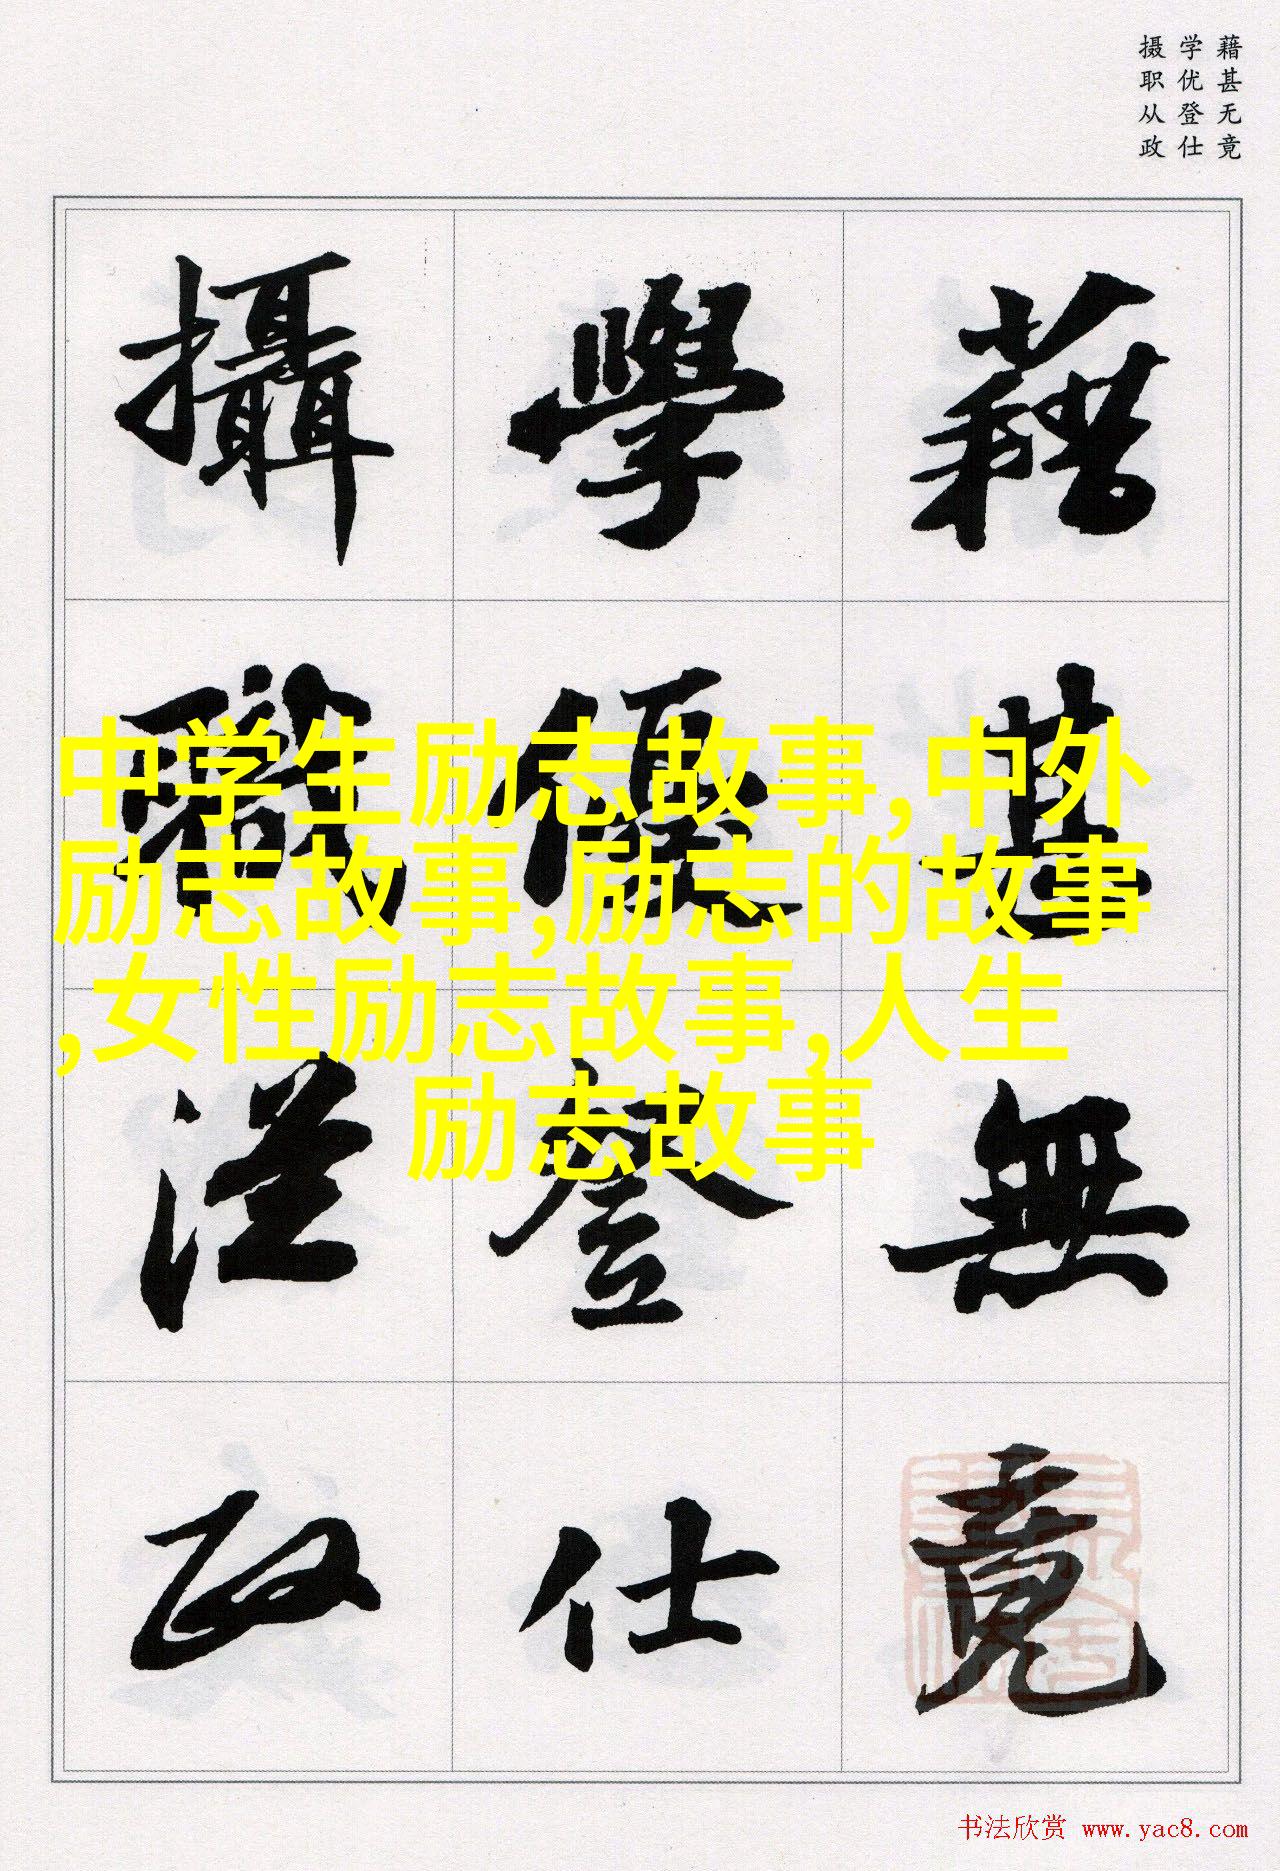 藉甚无竟
学优登仕
摄职从政
藉甚無竟
學優登仕
攝職從政
中学生励志故事,中外
励志故事,励志的故事
,女性励志故事,人生
励志故事
书法欣赏 www.yac8.com